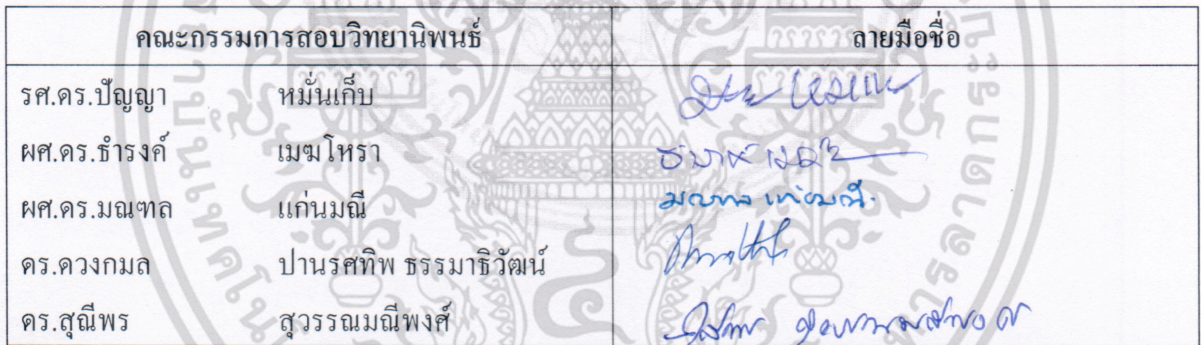 คณะกรรมการสอบวิทยานิพนธ์ ลายมือชื่อ
รศ.ดร.ปัญญา หมั่นเก็บ
ผศ.ดร.ธำรงค์ เมฆโหรา
ผศ.ดร.มณฑล แก่นมณี มณฑล แก่นมณี
ดร.ดวงกมล ปานรศทิพ ธรรมาธิวัฒน์
ดร.สุณีพร สุวรรณมณีพงศ์